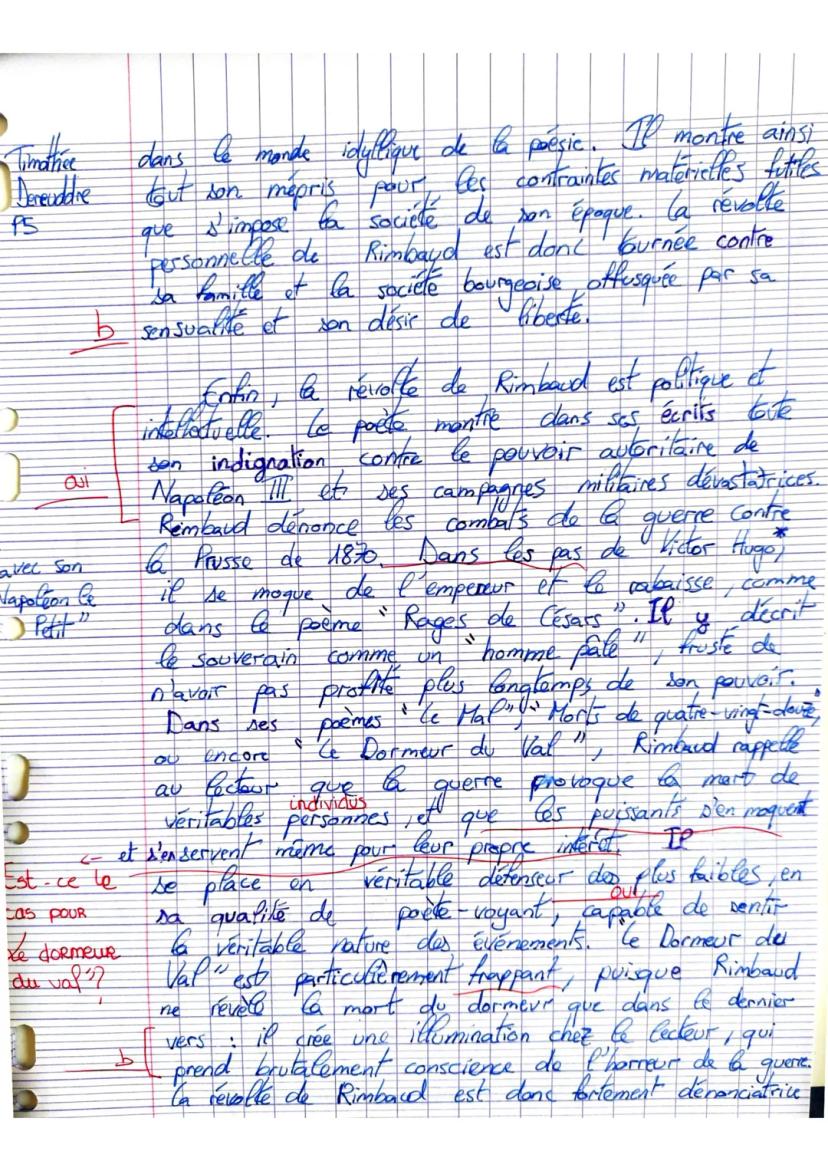 Timothée
Dereuddre
P5
dans le monde idyllique de la poésie. Il montre ainsi
tout son mépris pour les contraintes matérielles futiles
que s'impose la société de son époque. La révolte
personnelle de Rimbaud est donc tournée contre
sa famille et la société bourgeoise, offusquée par sa
b
sensualité et son désir de liberté.
Enfin, la révolte de Rimbaud est politique et
intellectuelle. Le poète montre dans ses écrits toute
son indignation contre le pouvoir autoritaire de
oui
Napoléon III et ses campagnes militaires dévastatrices.
Rimbaud dénonce les combats de la guerre contre
la Prusse de 1870. Dans les pas de Victor Hugo,*
avec son
Napoléon le
Petit"
il se moque de l'empereur et le rabaisse, comme
dans le poème "Rages de Césars". Il y décrit
le souverain comme un "homme pâle", frustré de
n'avoir pas profité plus longtemps de son pouvoir.
Dans ses poèmes "Le Mal", "Morts de quatre-vingt-douze",
ou encore "Le Dormeur du Val", Rimbaud rappelle
au lecteur que la guerre provoque la mort de
individus
véritables personnes, et que les puissants s'en moquent
← et s'en servent même pour leur propre intérêt. Il
Est-ce le
cas pour
"Le dormeur
du val"?
se place en véritable défenseur des plus faibles, en
oui
sa qualité de poète-voyant, capable de sentir
la véritable nature des événements. "Le Dormeur du
Val" est particulièrement frappant, puisque Rimbaud
ne révèle la mort du dormeur que dans le dernier
vers : il crée une illumination chez le lecteur, qui
b
prend brutalement conscience de l'horreur de la guerre.
La révolte de Rimbaud est donc fortement dénonciatrice